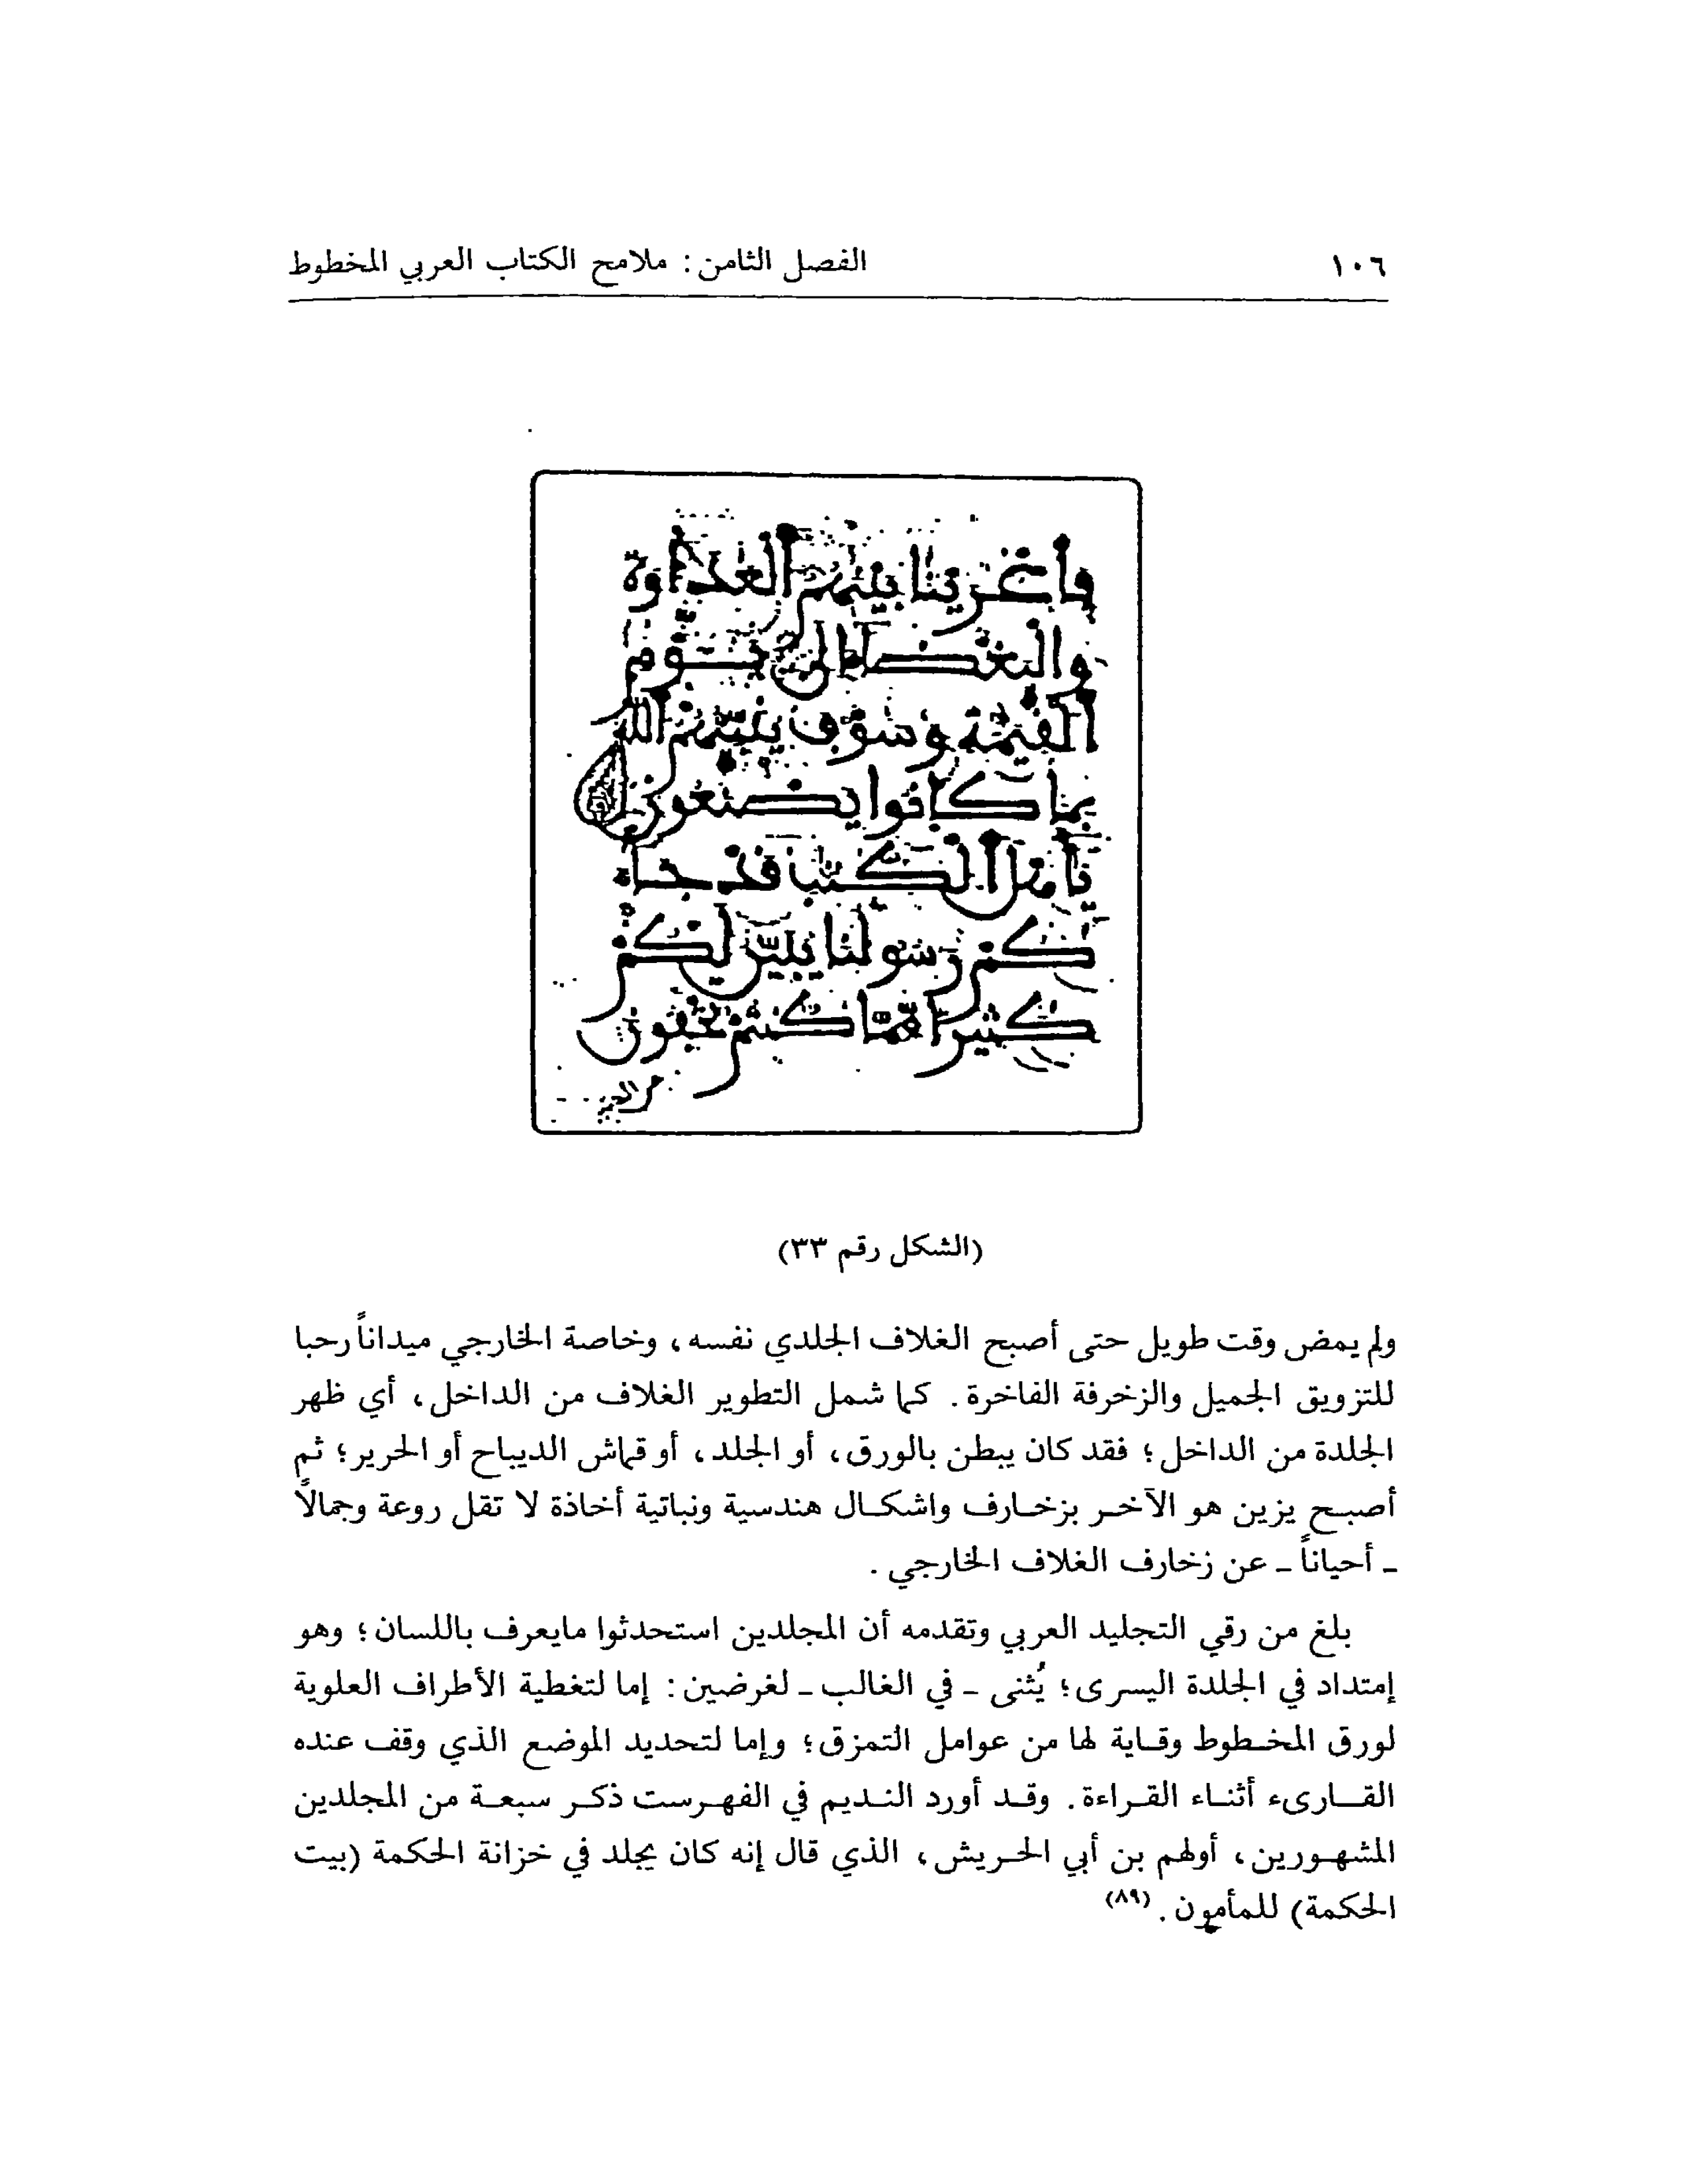 ١٠٦
الفصل الثامن : ملامح الكتاب العربي المخطوط
فأغرينا بينهم العداوة
والبغضاء الى يوم
القيمة وسوف ينبئهم الله
بما كانوا يصنعون
يأهل الكتب قد جاء
كم رسولنا يبين لكم
كثيرا مما كنتم تخفون
(الشكل رقم ٣٣)
ولم يمض وقت طويل حتى أصبح الغلاف الجلدي نفسه، وخاصة الخارجي ميداناً رحبا
للتزويق الجميل والزخرفة الفاخرة. كما شمل التطوير الغلاف من الداخل، أي ظهر
الجلدة من الداخل؛ فقد كان يبطن بالورق، أو الجلد، أو قماش الديباح أو الحرير؛ ثم
أصبح يزين هو الآخر بزخارف واشكال هندسية ونباتية أخاذة لا تقل روعة وجمالاً
ـ أحياناً ـ عن زخارف الغلاف الخارجي.
بلغ من رقي التجليد العربي وتقدمه أن المجلدين استحدثوا مايعرف باللسان؛ وهو
إمتداد في الجلدة اليسرى؛ يُثنى ـ في الغالب ـ لغرضين: إما لتغطية الأطراف العلوية
لورق المخطوط وقاية لها من عوامل التمزق؛ وإما لتحديد الموضع الذي وقف عنده
القارىء أثناء القراءة. وقد أورد النديم في الفهرست ذكر سبعة من المجلدين
المشهورين، أولهم بن أبي الحريش، الذي قال إنه كان يجلد في خزانة الحكمة (بيت
الحكمة) للمأمون. (٨٩)